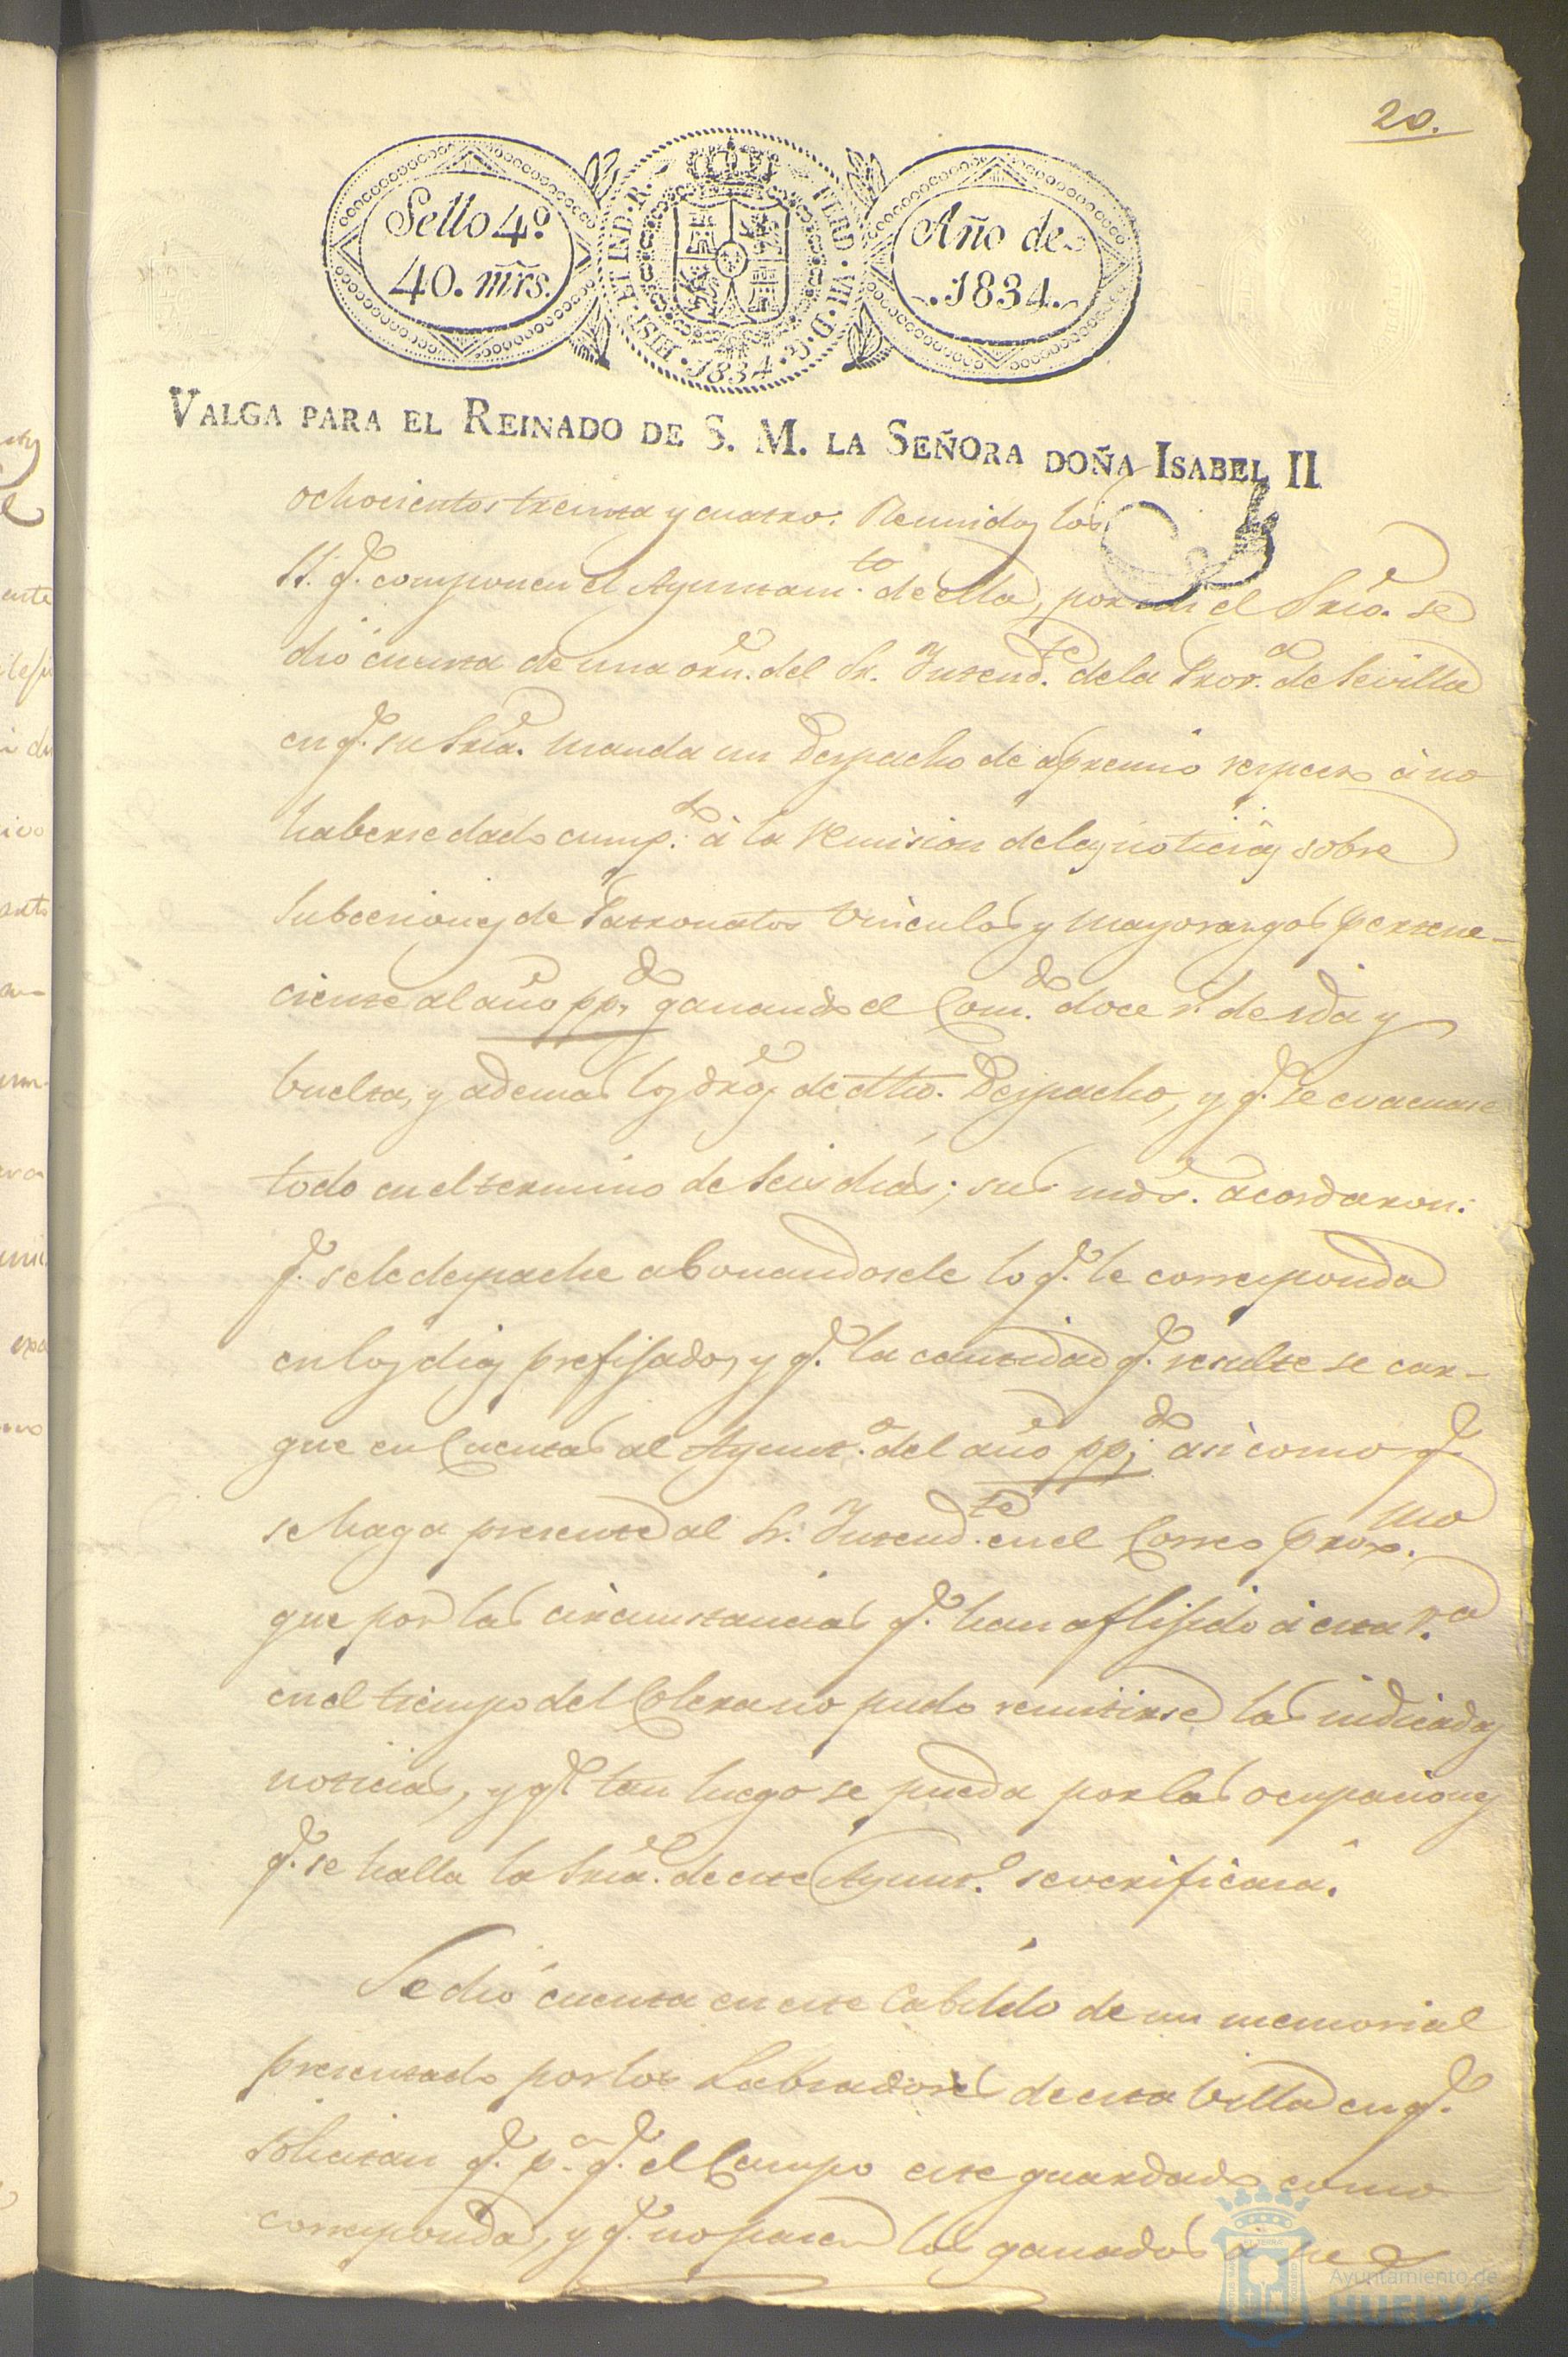 20.
Sello 4º
40. mrs.
HISP. ET IND. R.
FERD. VII. D. G.
1834
Año de
1834.
VALGA PARA EL REINADO DE S. M. LA SEÑORA DOÑA ISABEL II
ochocientos treinta y cuatro: Reunidos los
SS. q.e componen el Ayuntam.to de ella, por mi el Srio. se
dió cuenta de una orn. del Sr. Intend.te de la Prov.a de Sevilla
en q.e su Sria. manda un Despacho de apremio respecto à no
haberse dado cump.to à la remision de las noticias sobre
Subcesiones de Patronatos Vinculos y Mayorazgos pertene-
ciente al año pp.do ganando el Com.do doce r.s de ida y
buelta, y ademas los dros de dho. Despacho, y q.e se evacuase
todo en el termino de seis dias; sus mds. acordaron:
q.e se le despache abonandosele lo q.e le corresponda
en los dias prefijados, y q.e la cantidad q.e resulte se car-
gue en Cuentas al Ayunt.o del año pp.do asi como q.e
se haga presente al Sr. Intend.te en el Correo prox.mo
que por las circunstancias q.e han aflijido à esta V.a
en el tiempo del Colera no pudo remitirse las indicadas
noticias, y q.e tan luego se pueda por las ocupaciones
q.e se halla la Sria. de este Ayunt.o se verificará.
Se dió cuenta en este Cabildo de un memorial
presentado por los Labradores de esta Villa en q.e
solicitan q.e p.a q.e el Campo este guardado como
corresponda, y q.e no pasen los ganados a
Ayuntamiento de
HUELVA